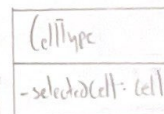 CellType
-selectedCell: Cell